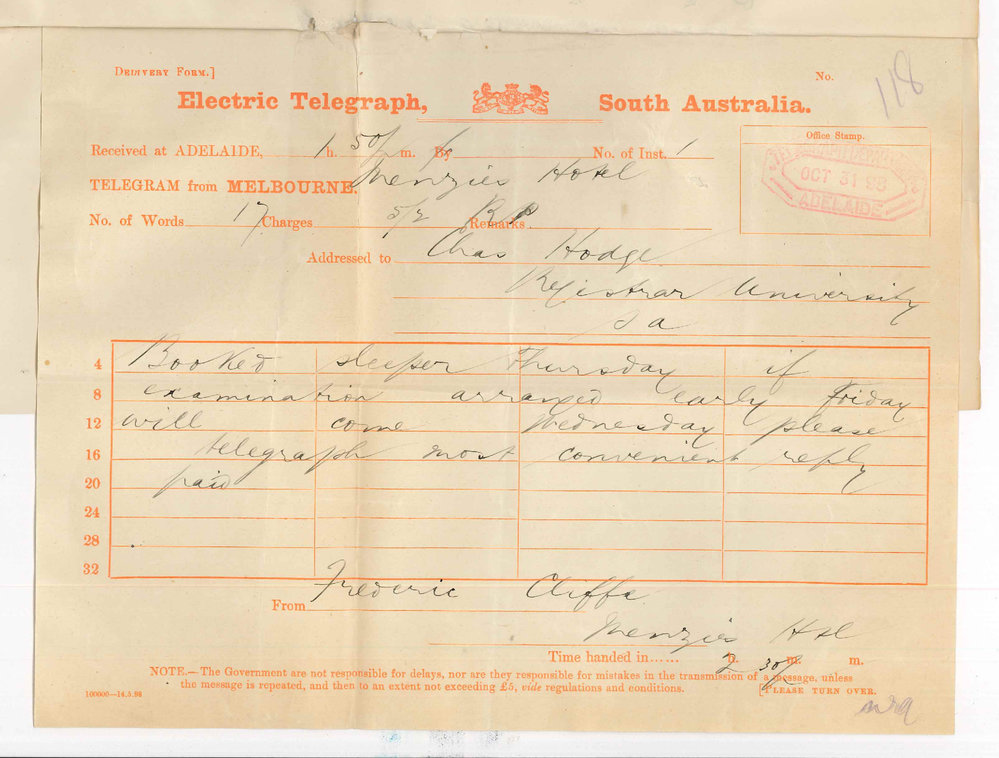 118
DELIVERY FORM.] No.
Electric Telegraph, South Australia.
Office Stamp.
Received at ADELAIDE, 1 h. 50 m. By No. of Inst. 1
OCT 31 98
ADELAIDE
TELEGRAM from MELBOURNE. Menzies Hotel
No. of Words 17 Charges 5/2 Remarks RP
Addressed to Chas Hodge
Registrar University
S a
4 Booked sleeper Thursday if
8 examination arranged early Friday
12 will come Wednesday please
16 telegraph most convenient reply
20 paid
24
28
32
From Frederic Cliffe
Menzies Htl
Time handed in...... 2 h. 30 m. m.
NOTE.—The Government are not responsible for delays, nor are they responsible for mistakes in the transmission of a message, unless
the message is repeated, and then to an extent not exceeding £5, vide regulations and conditions. [PLEASE TURN OVER.
100000—14.5.98